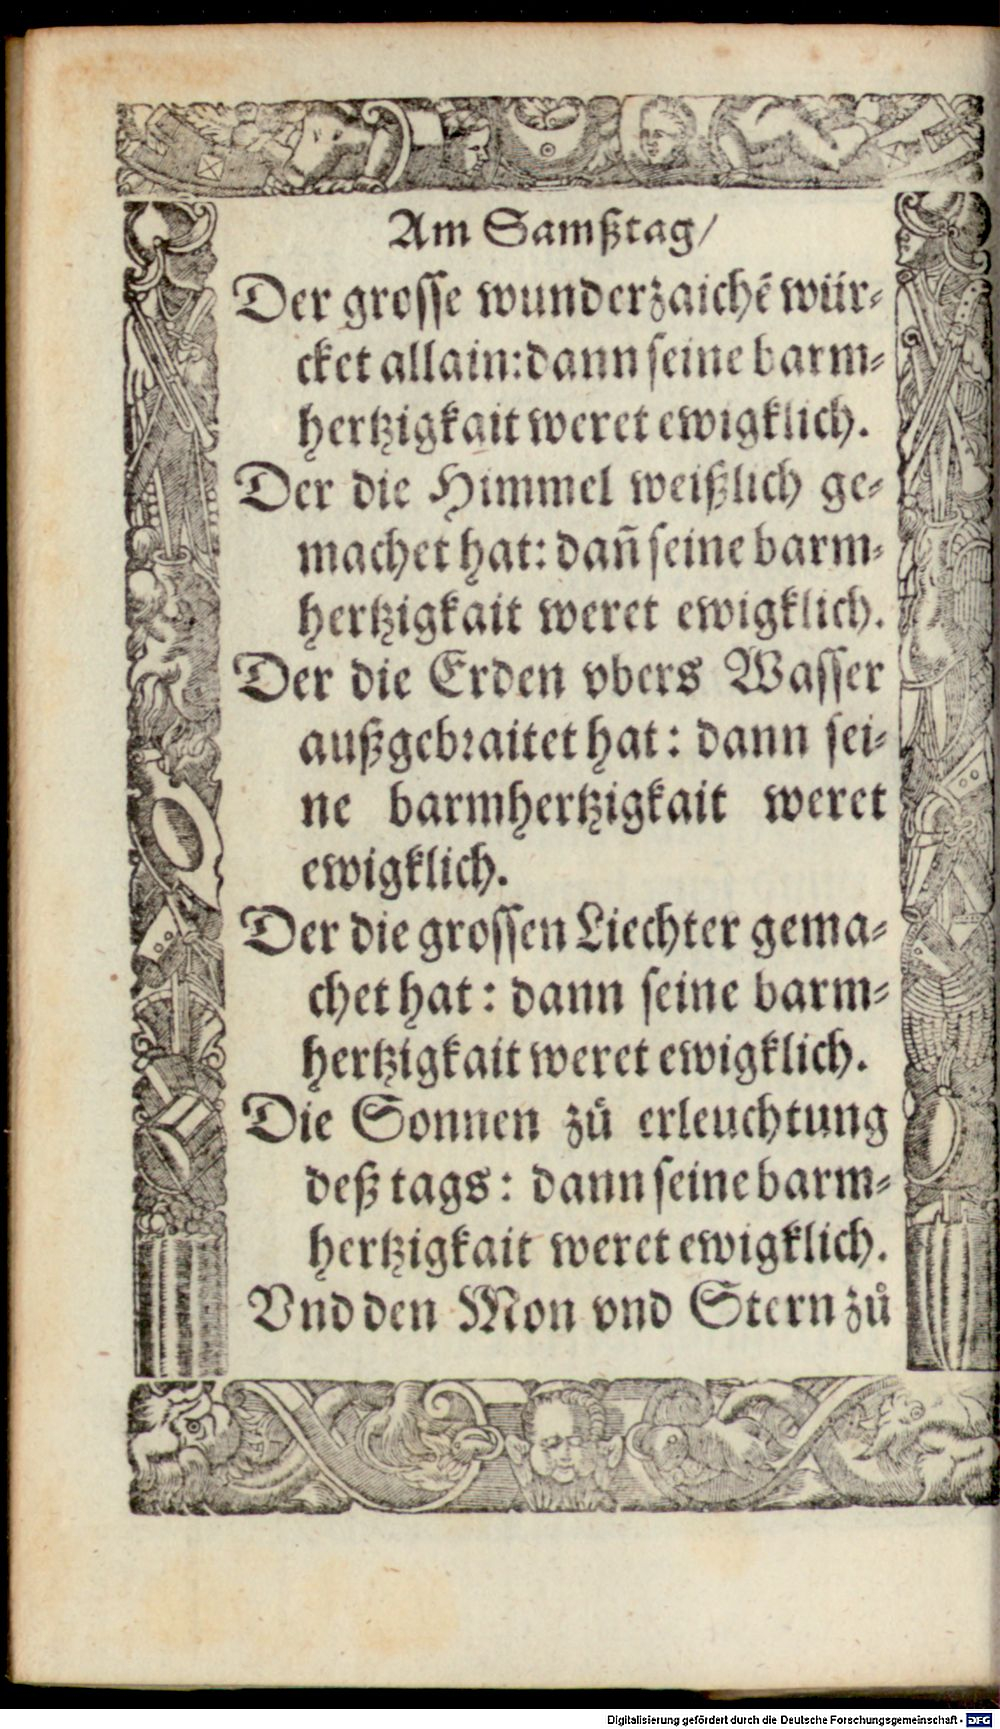 Am Samßtag/
Der grosse wunderzaichẽ wür⸗
cket allain: dann seine barm⸗
hertzigkait weret ewigklich.
Der die Himmel weißlich ge⸗
machet hat: dañ seine barm⸗
hertzigkait weret ewigklich.
Der die Erden vbers Wasser
außgebraitet hat: dann sei⸗
ne barmhertzigkait weret
ewigklich.
Der die grossen Liechter gema⸗
chet hat: dann seine barm⸗
hertzigkait weret ewigklich.
Die Sonnen zů erleuchtung
deß tags: dann seine barm⸗
hertzigkait weret ewigklich.
Vnd den Mon vnd Stern zů
Digitalisierung gefördert durch die Deutsche Forschungsgemeinschaft - DFG